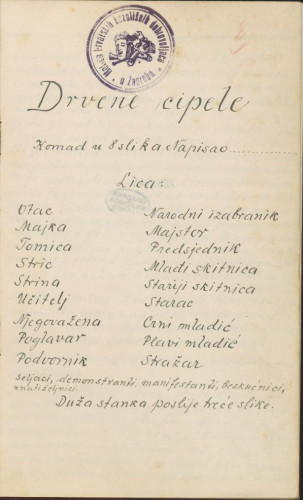 Matica hrvatskih kazališnih dobrovoljaca
u Zagrebu
Drvene cipele
Komad u 8 slika Napisao ..............
Lica:
Otac Narodni izabranik
Majka Majstor
Tomica Predsjednik
Stric Mlađi skitnica
Strina Stariji skitnica
Učitelj Starac
Njegova žena Crni mladić
Poglavar Plavi mladić
Podvornik Stražar
Seljaci, demonstranti, manifestanti, beskućnici,
znatiželjnici.
Duža stanka poslije treće slike.